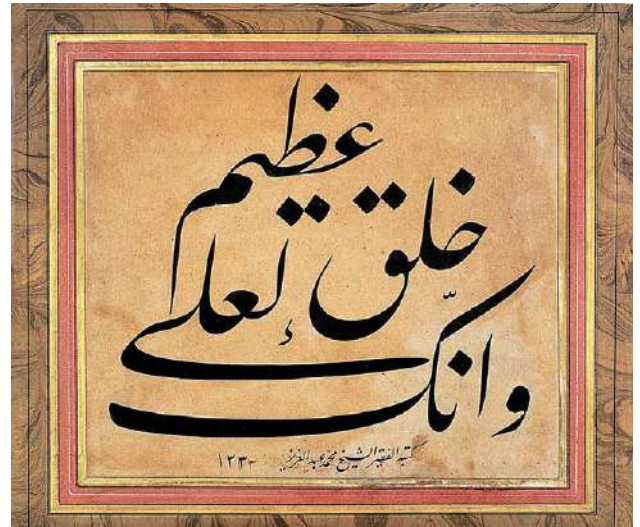 وانّك لعلى خلق عظيم
كتبه الفقير الشيخ محمد عبد العزيز ١٢٣٣